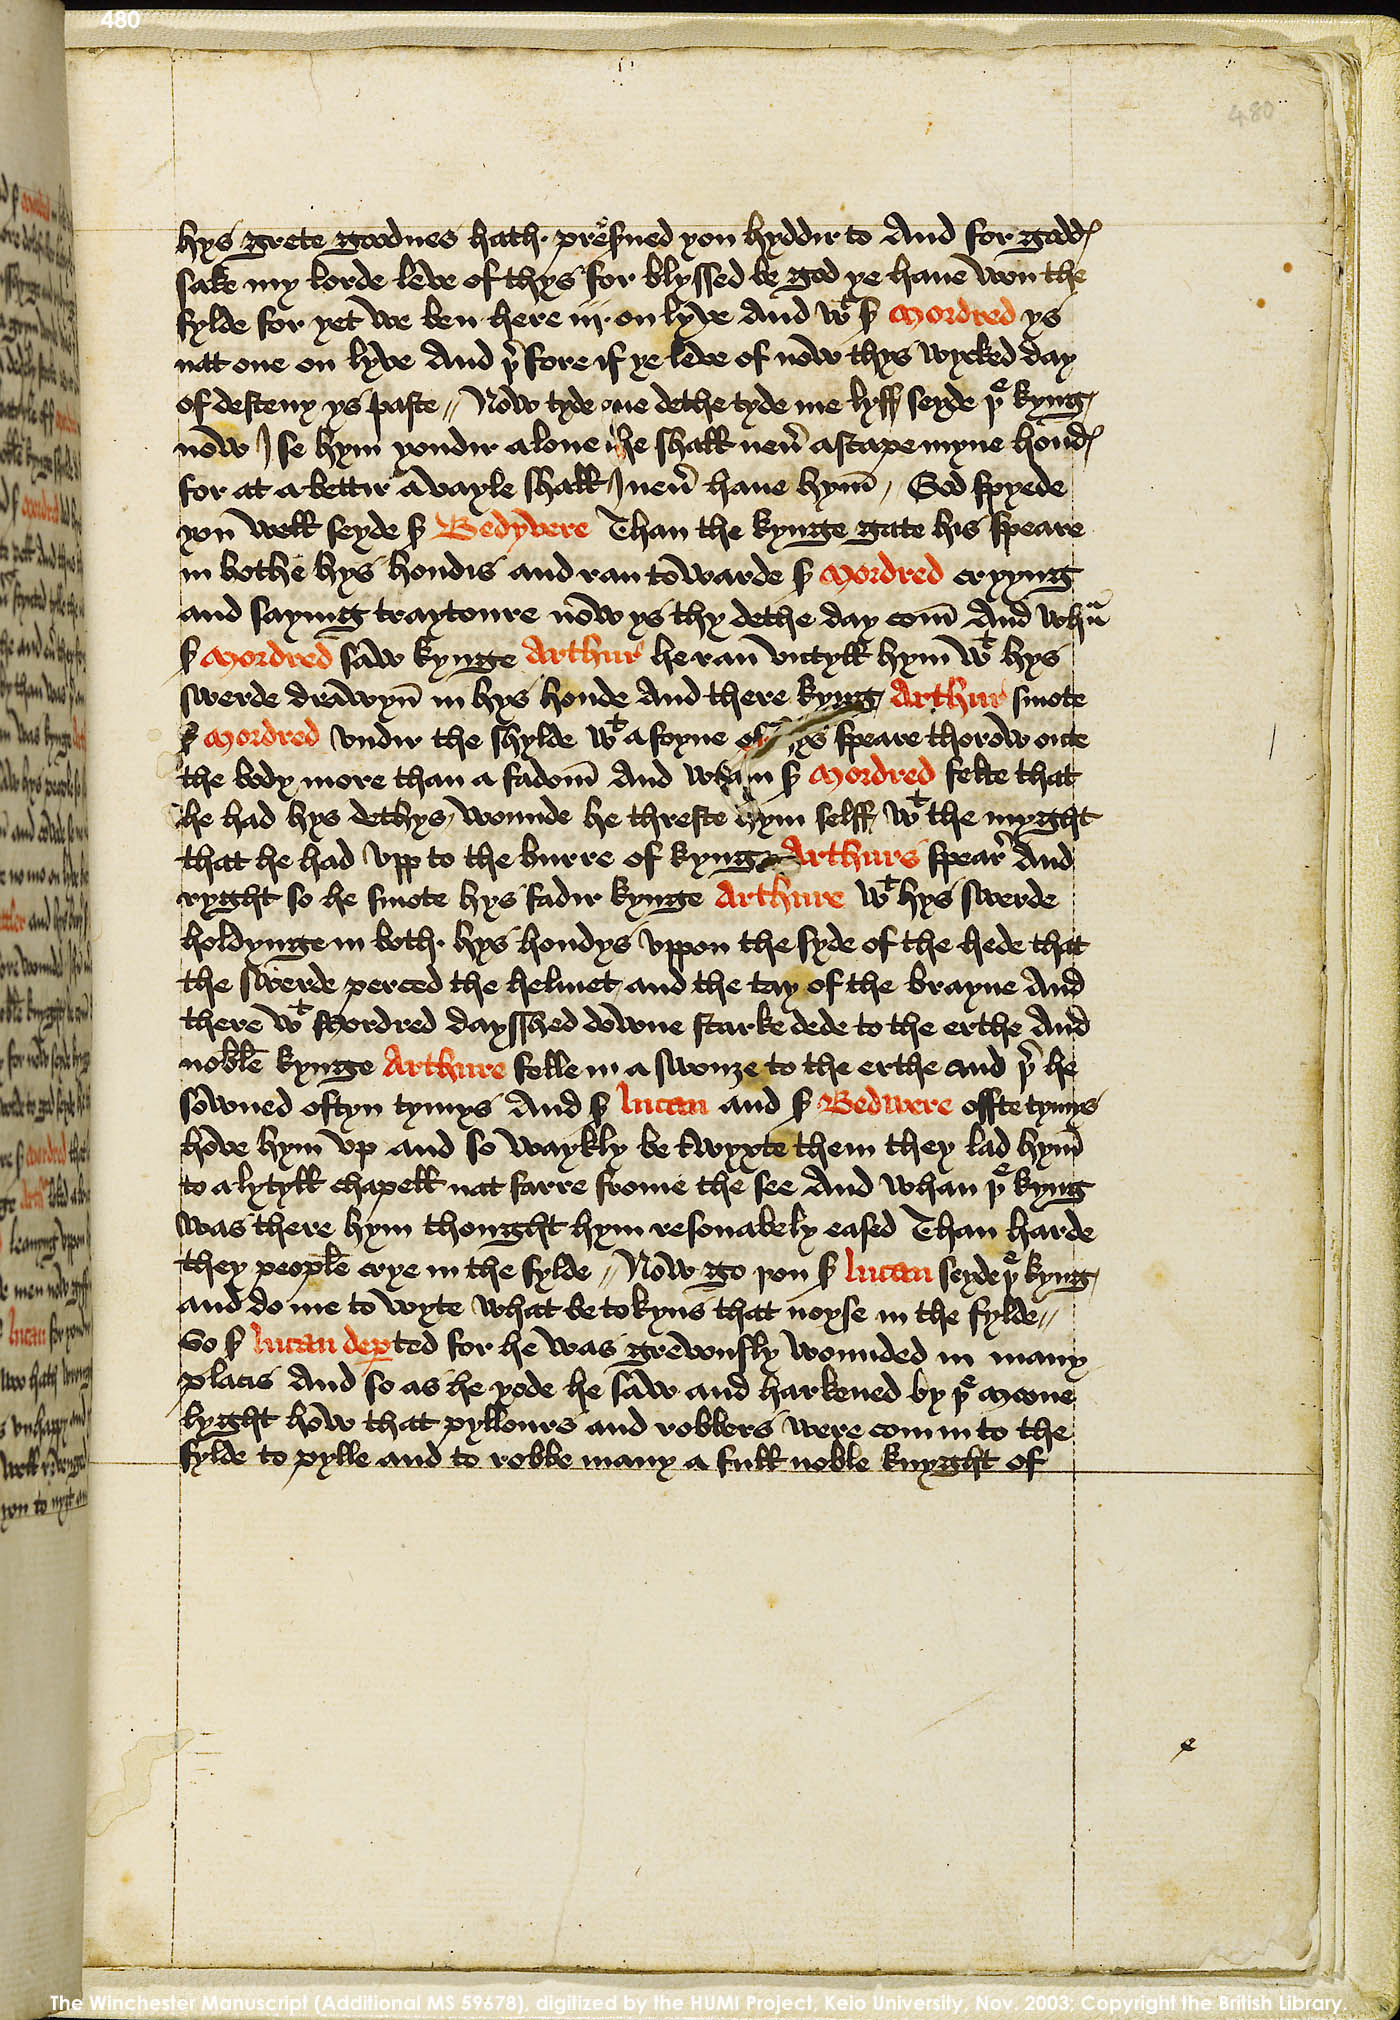 480
480
hys grete goodnes hath p̄ſued yon hyddir to And for godd
sake my lorde leve of thys for blyssed be god ye haue won the
fylde for yet we ben here iij on lyve And wt ẜ Mordred ys
nat one on lyve And þ̄fore if ye leve of now thys wycked day
of desteny ys paste // Now tyde me dethe tyde me lyff seyde þe kyng
now I se hym yondir a lone he shall neṽ ascape myne hond
for at a bettir avayle shall I neṽ haue hym̄ // God spyede
you well seyde ẜ Bedyvere Than the kynge gate his speare
in bothe hys hondis and ran towarde ẜ Mordred cryyng
and sayng traytoure now ys thy dethe day com̄ And whā
ẜ Mordred saw kynge Arthur he ran vntyll hym wt hys
swerde drawyn̄ in hys honde And there kyng Arthur smote
ẜ Mordred vndir the shylde wt a foyne of hys speare thorow oute
the body more than a fadom̄ And whan ẜ Mordred felte that
he had hys dethys wounde he threste hym selff wt the myght
that he had vpp to the burre of kyng Arthurs spear̄ And
ryght so he smote hys fadir kynge Arthure wt hys swerde
holdynge in both hys hondys vppon the syde of the hede that
the swerde perced the helmet and the tay of the brayne And
there wt Mordred daysshed downe starke dede to the erthe And
noble kynge Arthure felle in a swouze to the erthe and þ̄ he
sowned oftyn tymys And ẜ lucan and ẜ Bedwere offte tymys
hove hym vp and so waykly be twyxte them they lad hym̄
to a lytyll chapell nat farre frome the see And whan þe kyng
was there hym thought hym resonabely eased Than harde
they people crye in the fylde // Now go you ẜ lucan seyde þe kyng
and do me to wyte what be tokyns that noyse in the fylde //
So ẜ lucan deꝑted for he was grevously wounded in many
placis And so as he yode he saw and harkened by þe moone
lyght how that pyllours and robbers were com in to the
fylde to pylle and to robbe many a full noble knyght of
The Winchester Manuscript (Additional MS 59678), digitized by the HUMI Project, Keio University, Nov. 2003; Copyright the British Library.